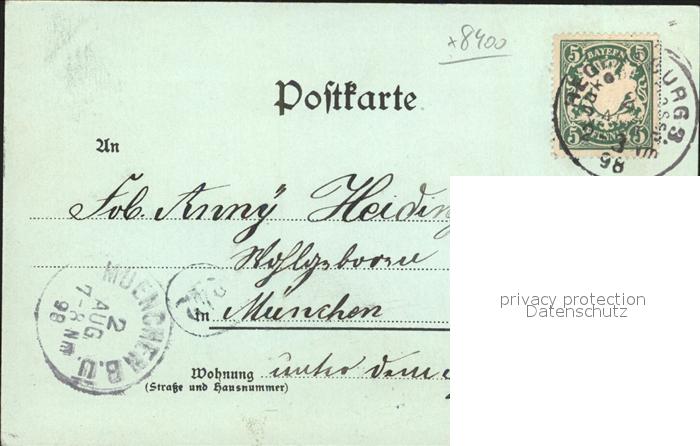 x8400
5 BAYERN 5
5 PFENNIG 5
REG URG 3.
98
Postkarte
An
Frl. Anny Heiding
Wohlgeboren
MUENCHEN B.U.
2
AUG
7-8 Nm
98
in München
privacy protection
Datenschutz
Wohnung unter dem
(Straße und Hausnummer)